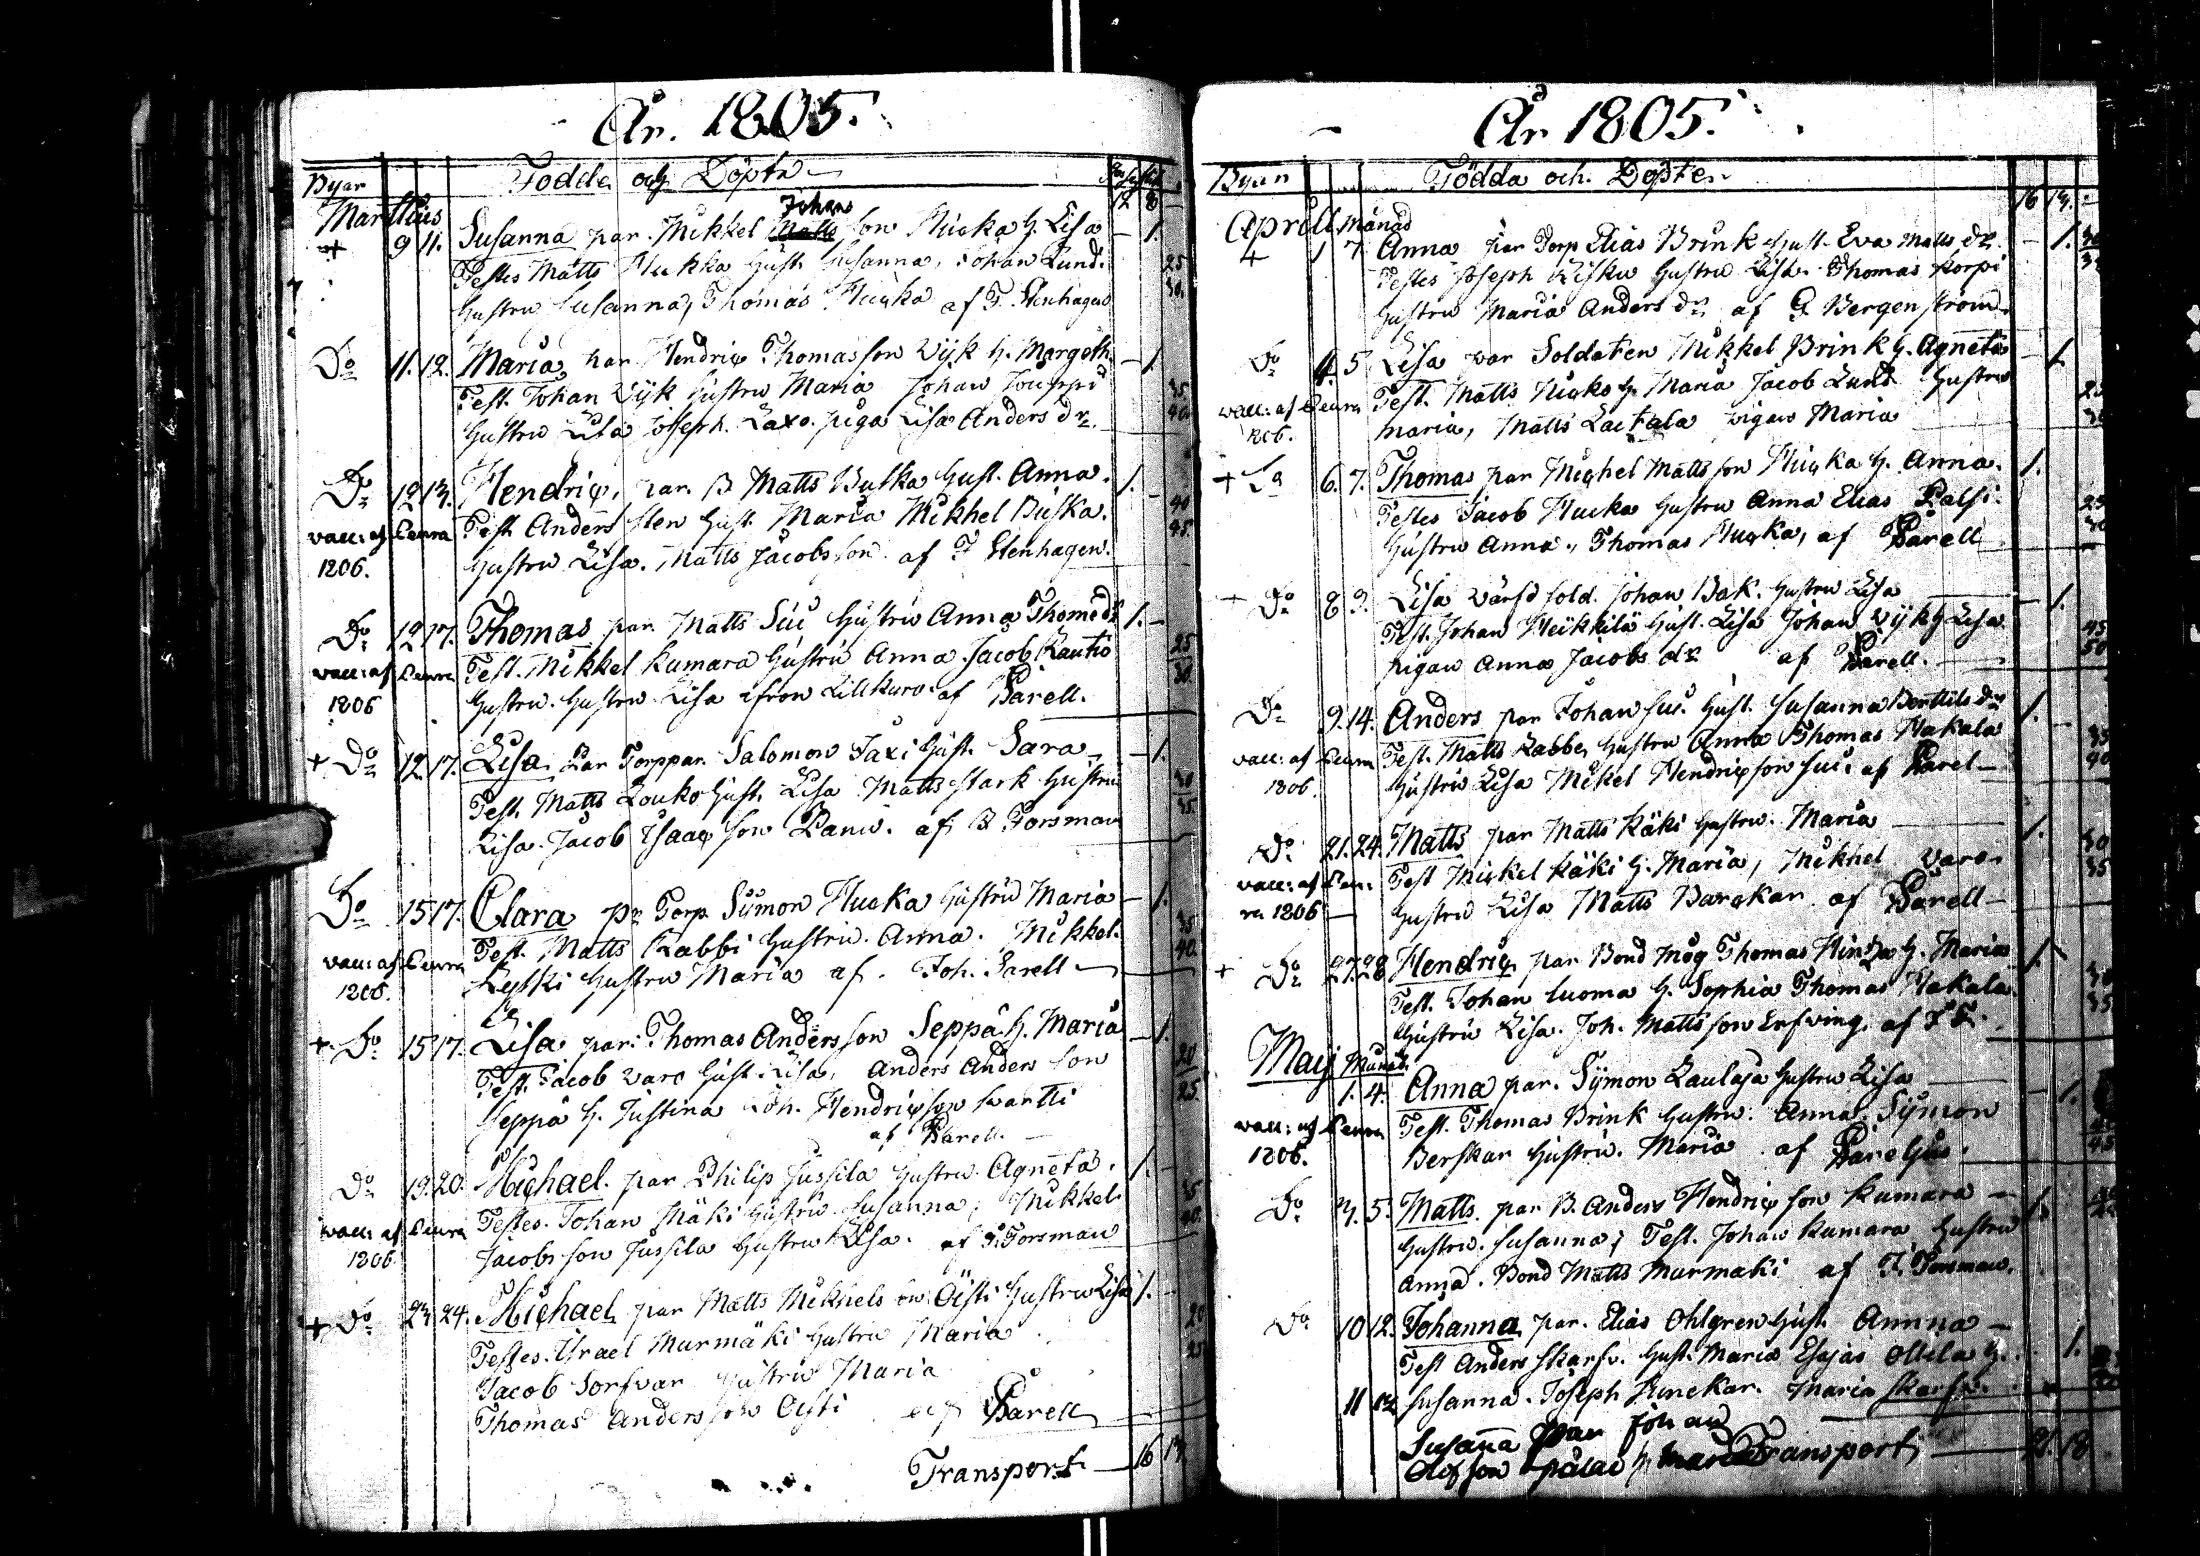 År. 1805.
Byar Födda och Döpta
12 8
Marttius Johans
+ 9 11. Susanna par. Mikkel Matts son Hucka h. Lisa - 1.
Testes Matts Hukka hust. Susanna, Johan Lund. 25
hustru Susanna, Thomas Hucka af F. Stenhagen 30.
Do 11. 12. Maria, par Hendric Thomasson Wijk h. Margeth. - 1.
Test. Johan Wijk hustru Maria Johan 35
hustru Lisa Joseph. Laxo. piga Lisa Anders dr. 40
Do 12 13. Hendric, par. B Matts Butka hust. Anna. 1. -
Test Anders sten hust. Maria Mikhel Buska. 40
vacc: af Leura hustru Lisa. Matts Jacobsson af F Stenhagen. 45
1806.
Do 12 17. Thomas par Matts Sui hustru Anna Thome dr 1. -
vacc: af Leura Test. Mikkel Kamara hustru Anna Jacob Rautio 25
1806 hustru. hustru Lisa ifrån Lillkuro af Parell. 30
+ Do 12 17. Lisa Par Torppar. Salomon Saxi hust. Sara - 1.
Test. Matts Louko hust. Lisa Matts stark hustru 30
Lisa. Jacob Isaac son Panu. af B Forsman 35
Do 15 17. Clara pr Torp. Symon Hucka hustru Maria - 1.
Test. Matts Rabbi hustru. Anna. Mikkel. 35
vacc: af Leura hustru Maria af. Joh. Parell 40
1806.
+ Do 15 17. Lisa par: Thomas Anders son Seppä h. Maria - 1.
Test. Jacob Varo hust. Lisa, Anders Anders son 20
Seppä h. Justina Joh. Hendricson Svartti 25
af Parell.
Do 19. 20. Michael. par Philip Jussila hustru Agneta. 1. -
Testes. Johan Mäki hustru Susanna, Mikkel 35
vacc: af Leura Jacobsson Jussila hustru Lisa. af F. Forsman 40
1806
+ Do 23 24. Michael par Matts Mikhels son Öisti hustru Lisa 1. -
Testes. Israel Murmäki hustru Maria 20
Jacob Sorfvar hustru Maria 25
Thomas Anders son Öisti af Parell
Transport 16 13
År 1805.
Byan Födda och Döpten
16 13.
Aprill Månad
+ 1 7. Anna par Torp Elias Brink hust. Eva Matts dr. - 1. 30
Testes Joseph Risku hustru Lisa. Thomas Korpi
hustru Maria Anders dr. af G Bergenström
Do 4. 5. Lisa par Soldaten Mikkel Brink h. Agneta - 1
Test. Matts h. Maria Jacob Lund hustru
vacc: af Leura Maria, Matts Laitala pigan Maria
1806.
+ Do 6. 7. Thomas par Michel Matts son Hucka h. Anna. 1.
Testes Jacob Hucka hustru Anna Elias Palsi. 25
hustru Anna, Thomas Hucka, af Parell 30
+ Do 8 9. Lisa sold. Johan Bak. hustru Lisa - 1.
Test. Johan Heikkilä hust. Lisa Johan Wijk h Lisa 45
pigan Anna Jacobs dr af Parell. 50
Do 9. 14. Anders par Johan Sui. hust. Susanna Berttils dr 1.
Test. Matts Rabbe, hustru Anna Thomas Hakala 35
vacc: af Leura hustru Lisa Mikel Hendricson Sui. af Parel 40
1806.
Do 21. 24. Matts par Matts Käki hustru. Maria 1.
Test Mickel Käki h. Maria, Mikhel Varo. 30
vacc: af Leu- hustru Lisa Matts Barckar af Parell 35
ra 1806
+ Do 27. 28 Hendric par Bond Måg Thomas h. Maria 1. -
Test. Johan Luoma h. Sophia Thomas Hakala 30
hustru Lisa. Joh. Mattsson Erfving. af F. F. 35
Maij Månad.
1. 4. Anna par. Symon Laulaja hustru Lisa - 1.
vacc: af Leura Test. Thomas Brink hustru. Anna. Symon
1806. Berskar hustru. Maria af Parelius. 45
Do 3. 5. Matts. par B. Anders Hendric son Kamara 1.
hustru. Susanna; Test. Johan Kamara hustru
Anna. Bond Matts Murmaki af F. Forsman.
Do 10 12. Johanna par. Elias Ohlgren hust. Annna -
Test Anders Skarfv. hust. Maria Esajas Ollila h. - 1.
11 12 Susanna. Joseph Maria Skarfv.
Susana par Johan
Olofson h Maria Transport 21. 18